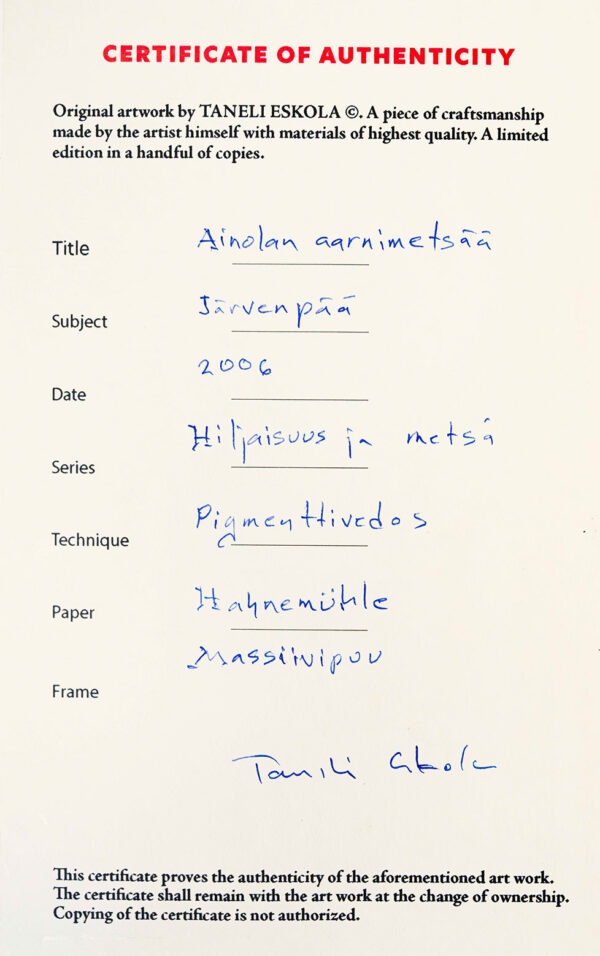 CERTIFICATE OF AUTHENTICITY
Original artwork by TANELI ESKOLA ©. A piece of craftsmanship
made by the artist himself with materials of highest quality. A limited
edition in a handful of copies.
Title Ainolan aarnimetsää
Subject Järvenpää
Date 2006
Series Hiljaisuus ja metsä
Technique Pigmenttivedos
Paper Hahnemühle
Frame Massiivipuu
Taneli Eskola
This certificate proves the authenticity of the aforementioned art work.
The certificate shall remain with the art work at the change of ownership.
Copying of the certificate is not authorized.